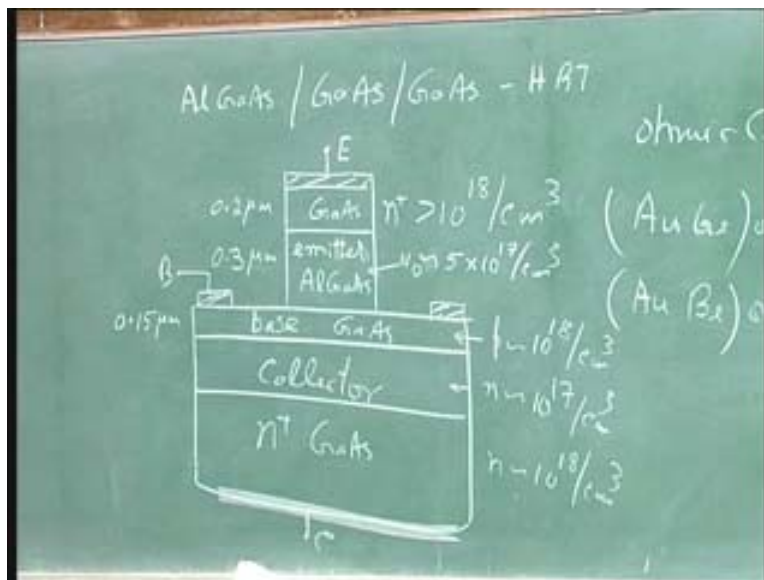 AlGaAs / GaAs / GaAs - HBT
ohmic C
E
0.2μm GaAs n⁺ > 10¹⁸/cm³
(Au Ge)
0.3μm emitter AlGaAs 5 x 10¹⁷/cm³
(Au Be)
B
0.15μm base GaAs p ~ 10¹⁸/cm³
Collector n ~ 10¹⁷/cm³
n⁺ GaAs n ~ 10¹⁸/cm³
C